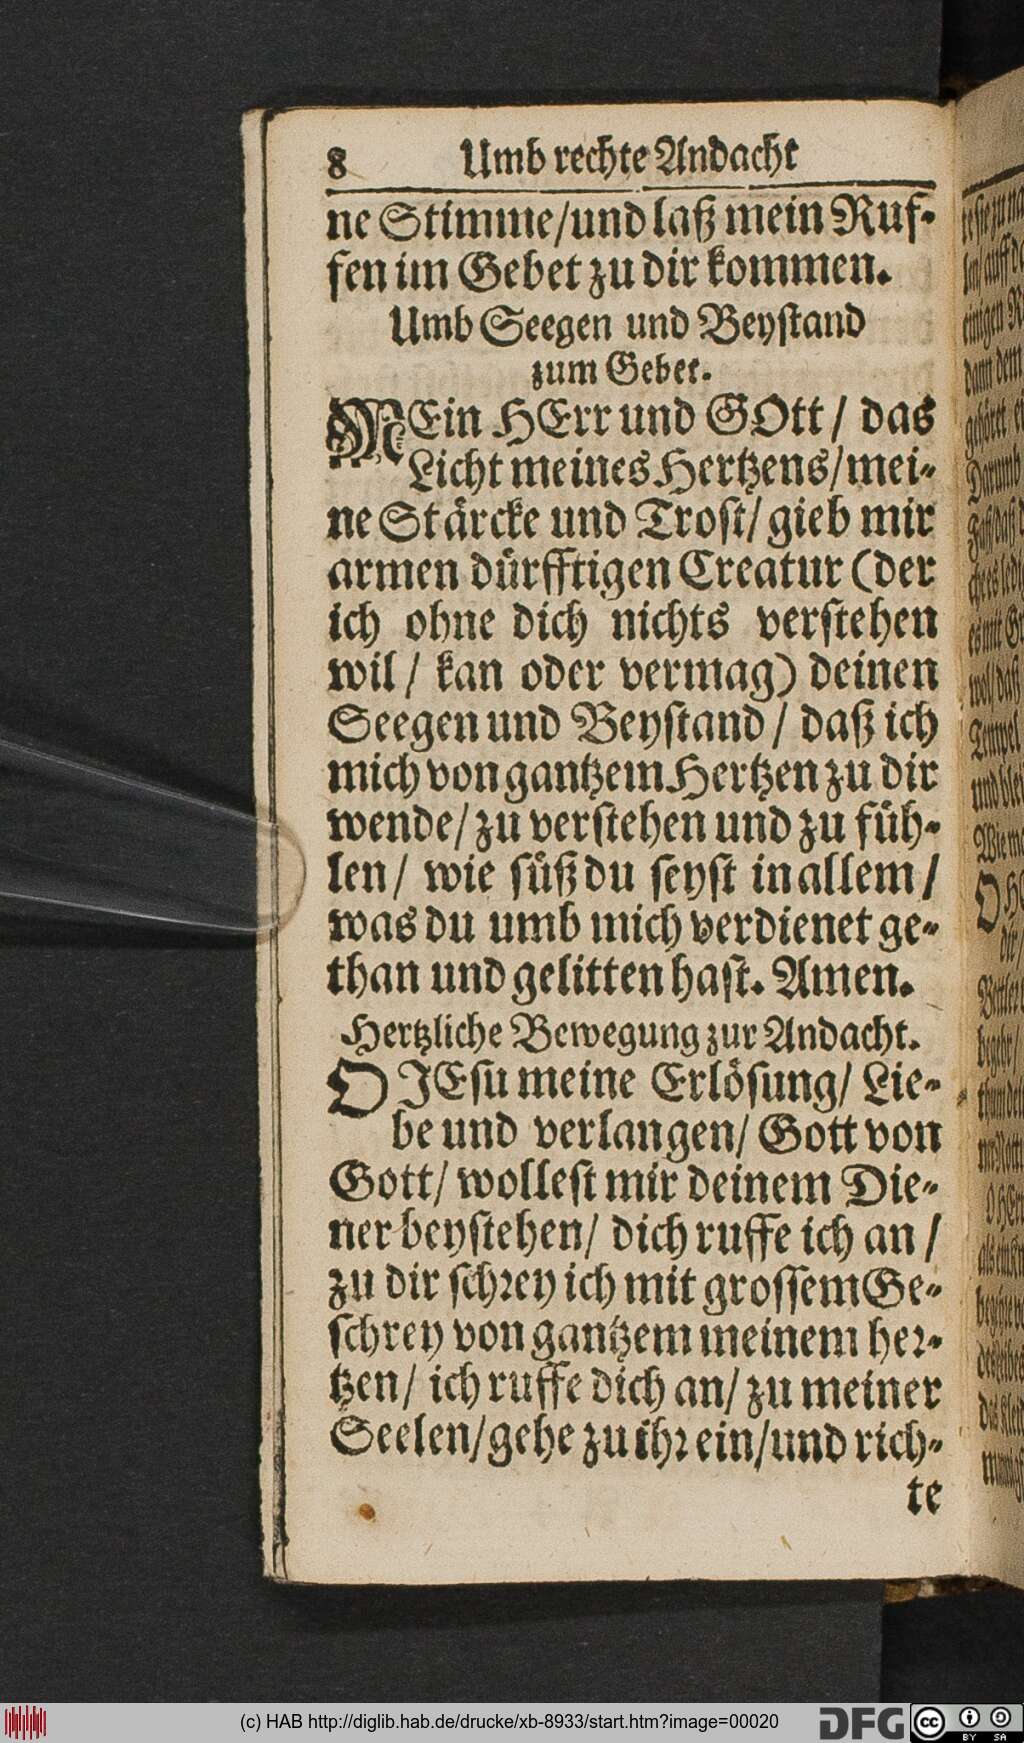 8 Umb rechte Andacht
ne Stimme/und laß mein Ruf-
fen im Gebet zu dir kommen.
Umb Seegen und Beystand
zum Gebet.
MEin HErr und GOtt / das
Licht meines Hertzens/mei-
ne Stärcke und Trost/ gieb mir
armen dürfftigen Creatur (der
ich ohne dich nichts verstehen
wil / kan oder vermag) deinen
Seegen und Beystand / daß ich
mich von gantzem Hertzen zu dir
wende/ zu verstehen und zu füh-
len / wie süß du seyst in allem /
was du umb mich verdienet ge-
than und gelitten hast. Amen.
Hertzliche Bewegung zur Andacht.
O JEsu meine Erlösung/ Lie-
be und verlangen/ Gott von
Gott/ wollest mir deinem Die-
ner beystehen/ dich ruffe ich an /
zu dir schrey ich mit grossem Ge-
schrey von gantzem meinem her-
tzen/ ich ruffe dich an/ zu meiner
Seelen/gehe zu ihr ein/und rich-
te
(c) HAB http://diglib.hab.de/drucke/xb-8933/start.htm?image=00020
DFG
cc
BY SA